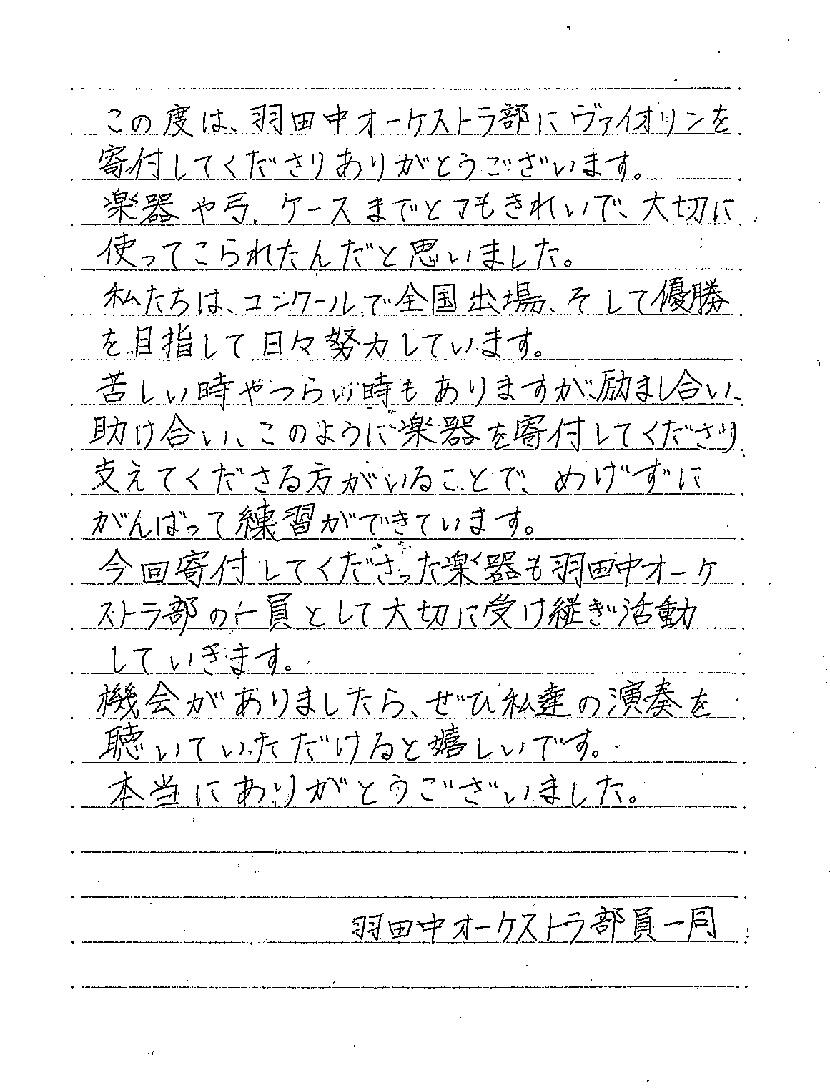 この度は、羽田中オーケストラ部にヴァイオリンを
寄付してくださりありがとうございます。
楽器や弓、ケースまでとてもきれいで、大切に
使ってこられたんだと思いました。
私たちは、コンクールで全国出場、そして優勝
を目指して日々努力しています。
苦しい時やつらい時もありますが、励まし合い、
助け合い、このように楽器を寄付してくださり
支えてくださる方がいることで、めげずに
がんばって練習ができています。
今回寄付してくださった楽器も羽田中オーケ
ストラ部の一員として大切に受け継ぎ活動
していきます。
機会がありましたら、ぜひ私達の演奏を
聴いていただけると嬉しいです。
本当にありがとうございました。
羽田中オーケストラ部員一同